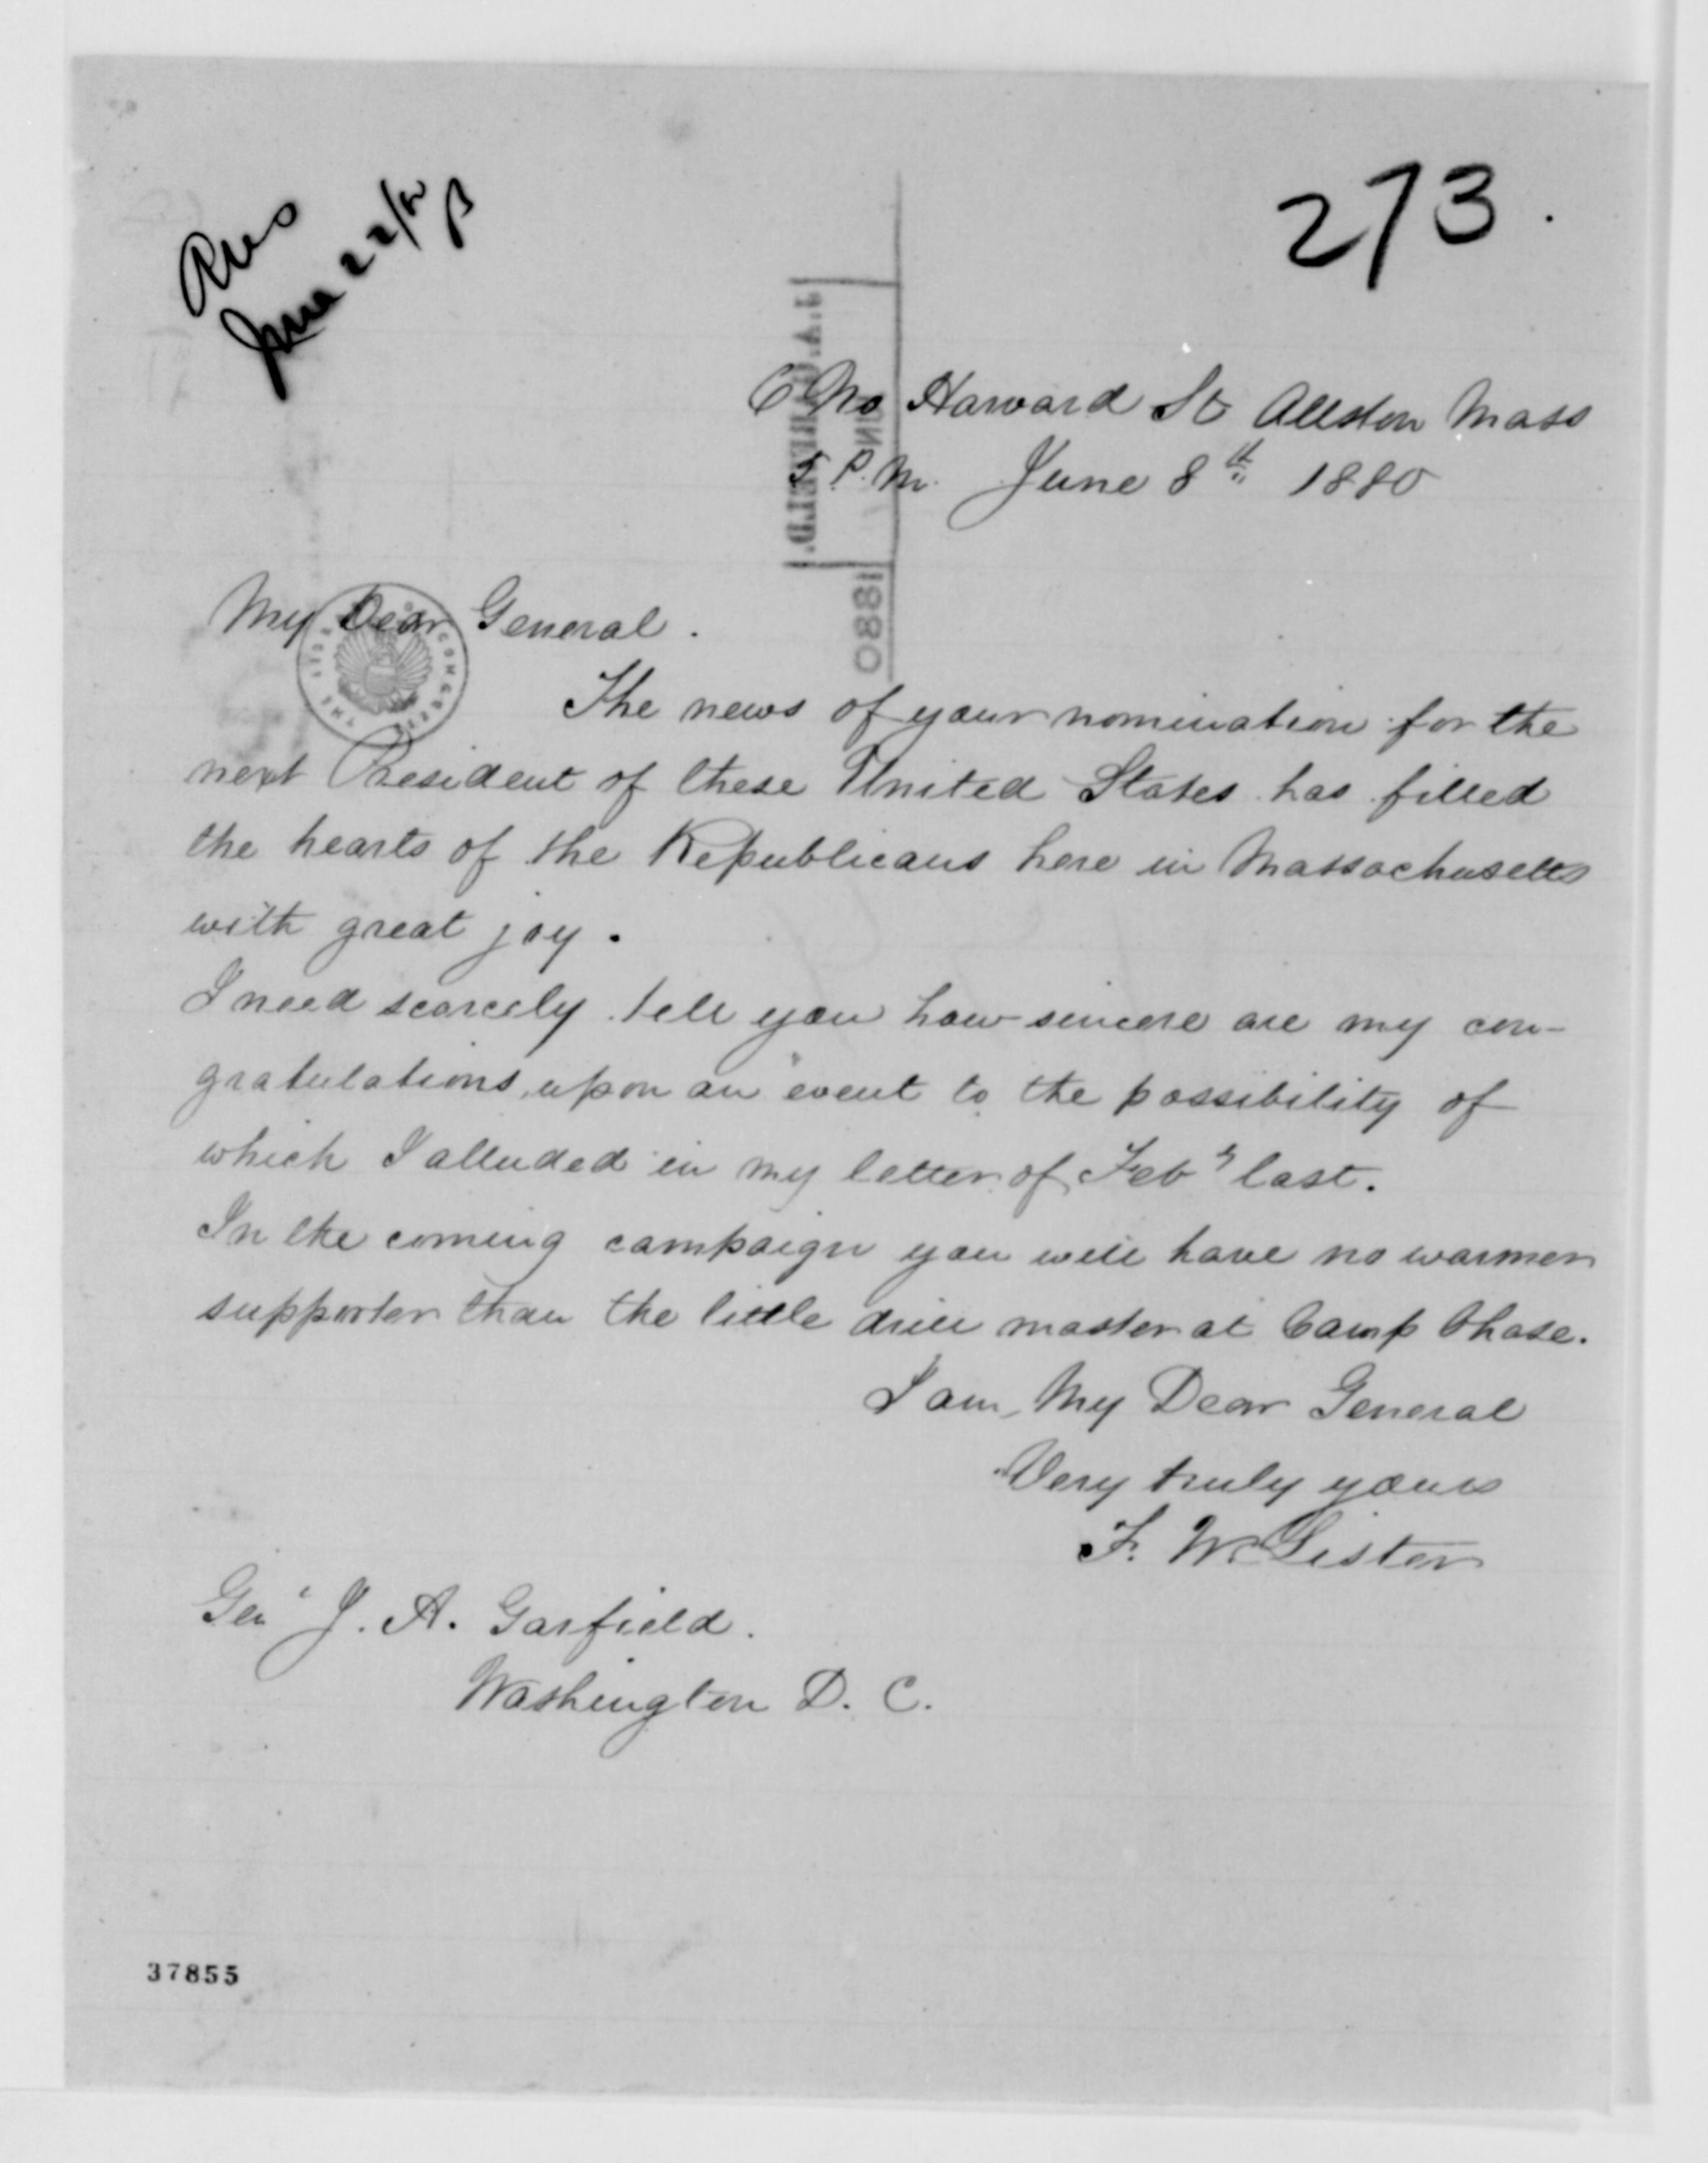 273.
Ans
June 22/80
J. A. GARFIELD.
JUN
1880
No Harvard St Allston Mass
5 P. M. June 8th 1880
My Dear General.
THE LIBRARY OF CONGRESS
The news of your nomination for the
next President of these United States has filled
the hearts of the Republicans here in Massachusetts
with great joy.
I need scarcely tell you how sincere are my con-
gratulations, upon an event to the possibility of
which I alluded in my letter of Feby last.
In the coming campaign you will have no warmer
supporter than the little drill master at Camp Chase.
I am, My Dear General
Very truly yours
F. W. Lister
Genl J. A. Garfield.
Washington D. C.
37855